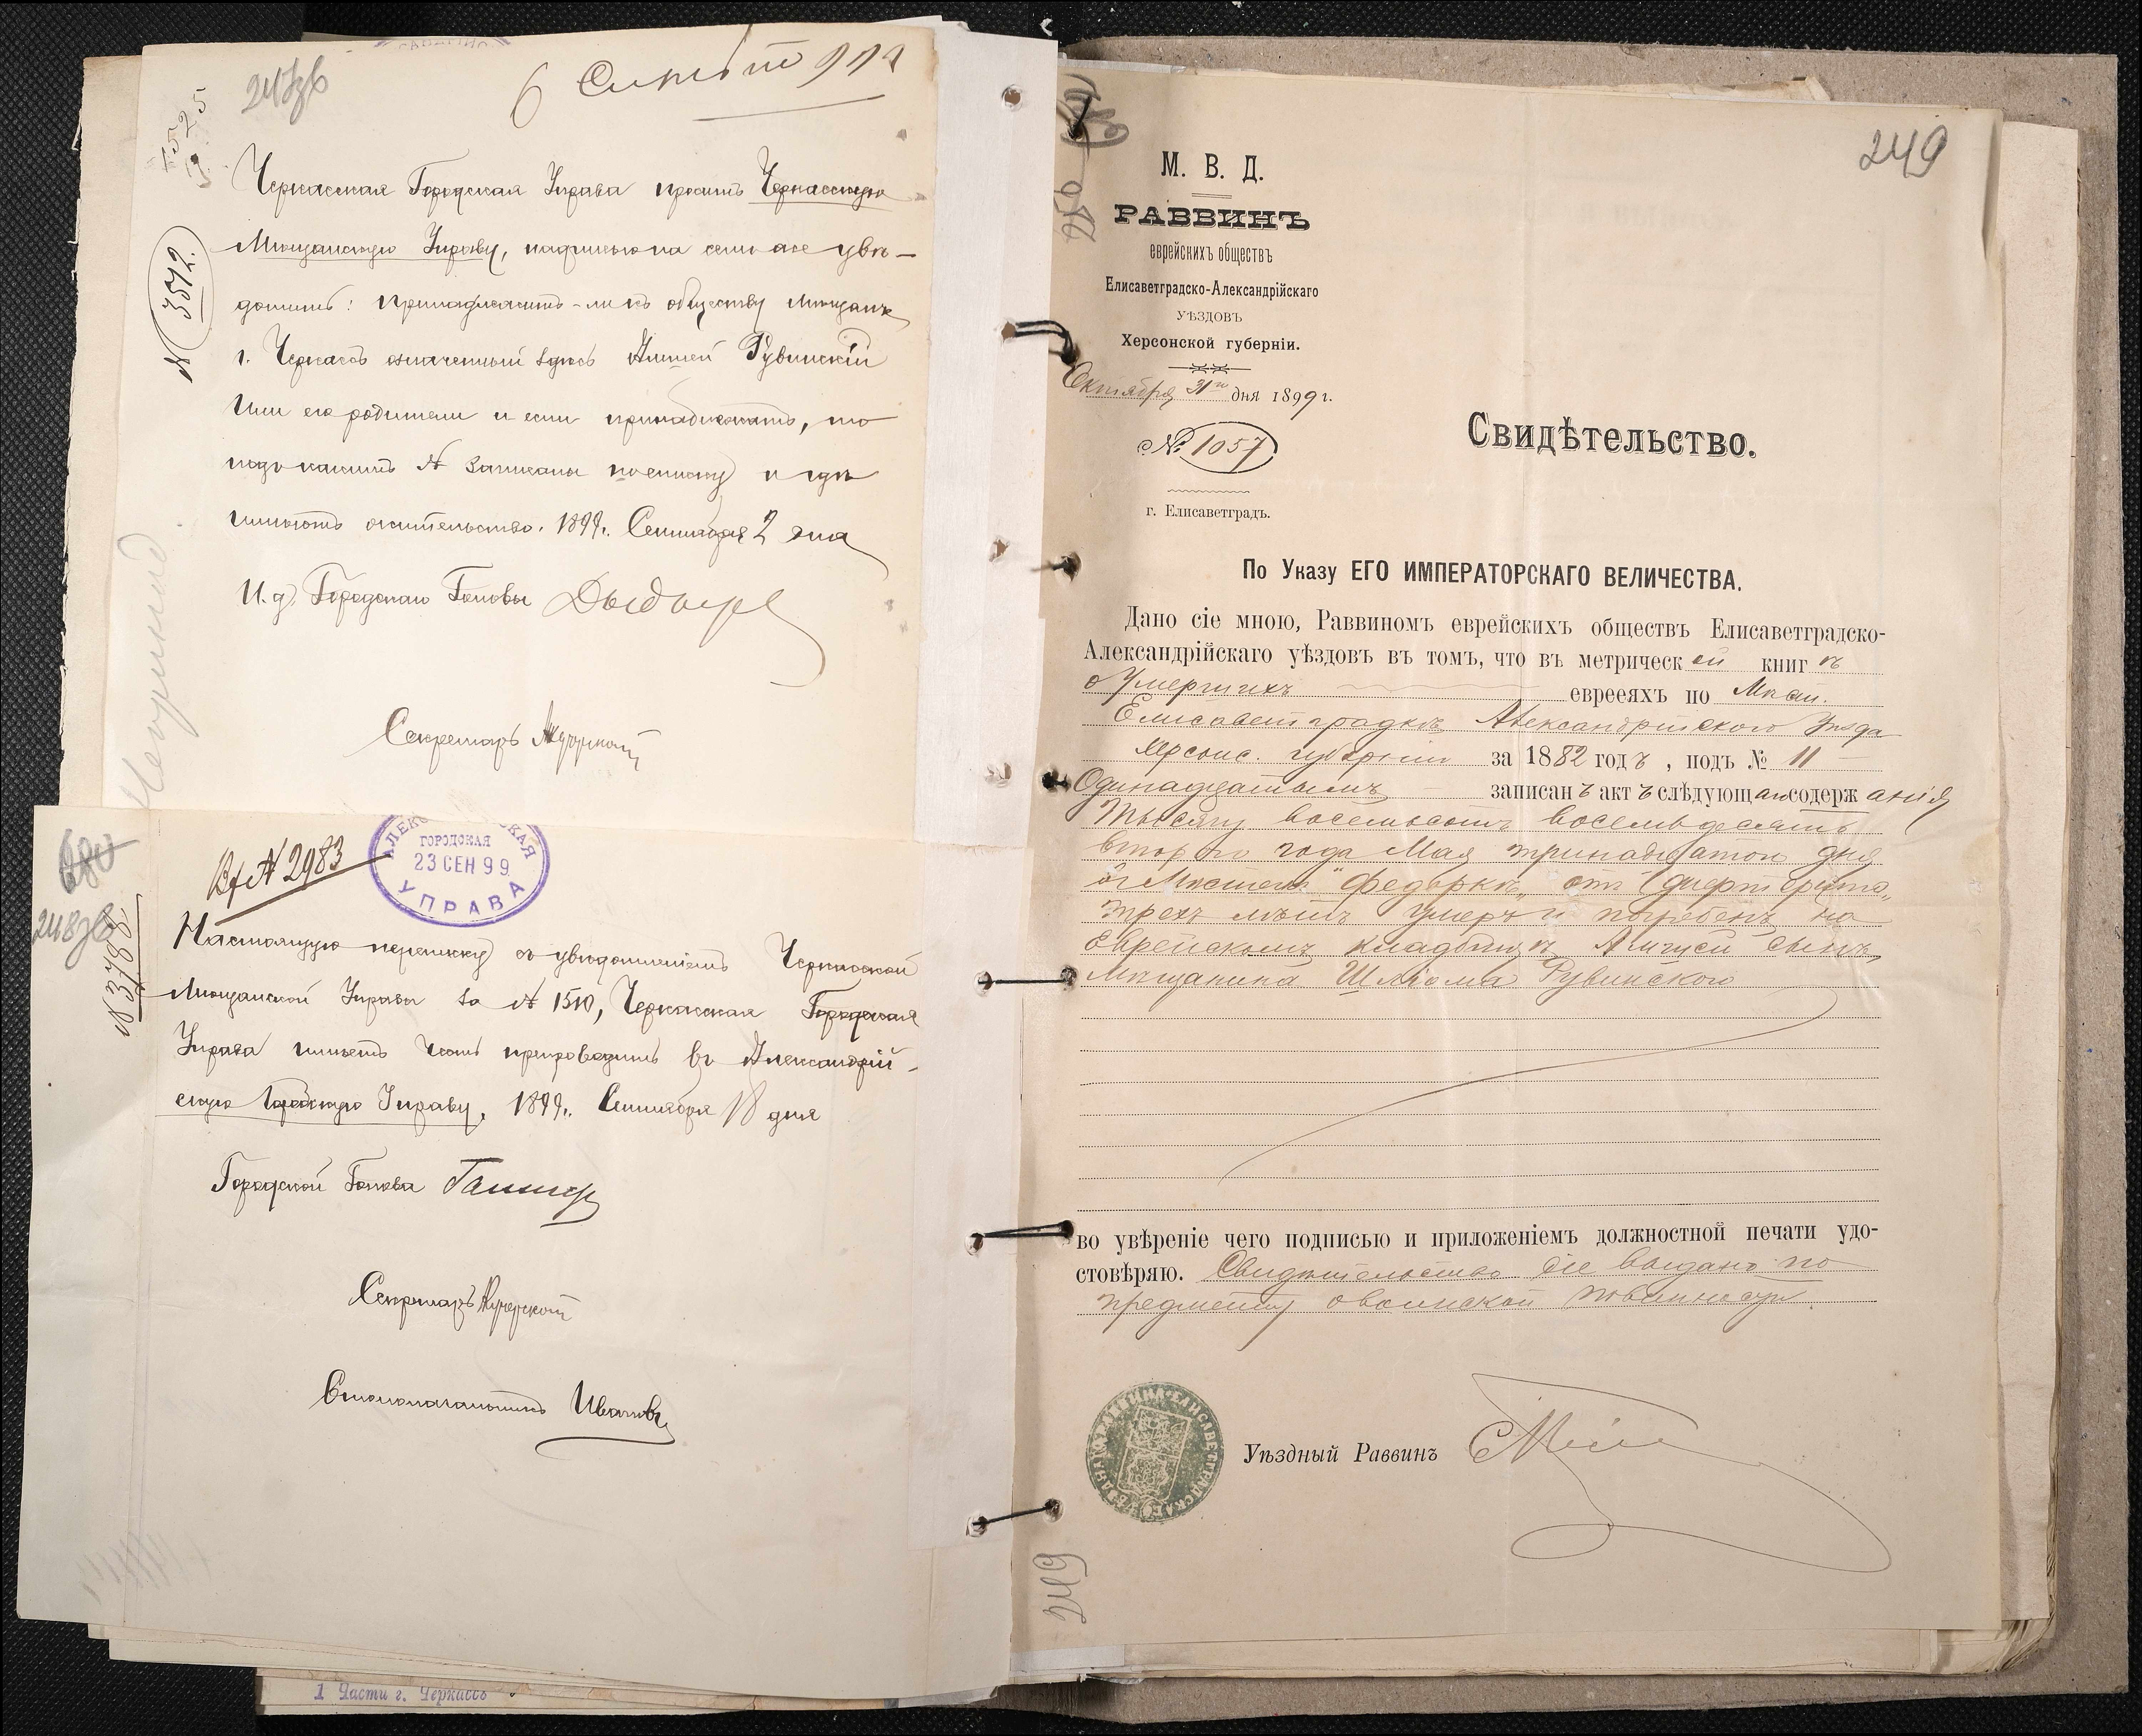 6 Сент 99 г
24836
4525
№ 3572.
Черкасская Городская Управа просить Черкасскую
Мѣщанскую Управу, надписью на семъ же увѣ-
домить: принадлежитъ-ли къ обществу мѣщанъ
г. Черкассъ означенный здѣсь Алтей Рувинскій
или его родители и если принадлежатъ, то
подъ какимъ № записаны по списку и гдѣ
имѣютъ жительство. 1899 г. Сентября 2 дня
И. д. Городскаго Головы
Секретарь
ГОРОДСКАЯ
23 СЕН 99
УПРАВА
Вх № 2983
280
248 об
№ 3788
Настоящую переписку съ увѣдомленіемъ Черкасской
Мѣщанской Управы за № 1510, Черкасская Городская
Управа имѣетъ честь препроводить въ Александрій-
скую Городскую Управу. 1899 г. Сентября 18 дня
Городской Голова
Секретарь
Столоначальникъ Ивановъ
1 Части г. Черкассъ
249
М. В. Д.
РАВВИНЪ
еврейскихъ обществъ
Елисаветградско-Александрійскаго
УѢЗДОВЪ
Херсонской губерніи.
Октября 31го дня 1899 г.
№ 1057
г. Елисаветградъ.
Свидѣтельство.
По Указу ЕГО ИМПЕРАТОРСКАГО ВЕЛИЧЕСТВА.
Дано сіе мною, Раввиномъ еврейскихъ обществъ Елисаветградско-
Александрійскаго уѣздовъ въ томъ, что въ метрической книгѣ
о умершихъ еврееяхъ по Мѣст.
Елисаветградкѣ Александрійского уѣзда
Херсонс. губерніи за 1882 годъ, подъ № 11
Одинадцатымъ записанъ актъ слѣдующаго содержанія
Тысячу восемьсотъ восемьдесятъ
второго года Мая тринадцатого дня
въ Мѣстеч. "Федоркѣ" отъ "дифтерита"
трехъ лѣтъ умеръ и погребенъ на
Еврейскомъ кладбищѣ Алтей сынъ
Мѣщанина Шліома Рувинского
во увѣреніе чего подписью и приложеніемъ должностной печати удо-
стовѣряю. Свидѣтельство сіе выдано по
предмету о воинской повинности.
Уѣздный Раввинъ
249